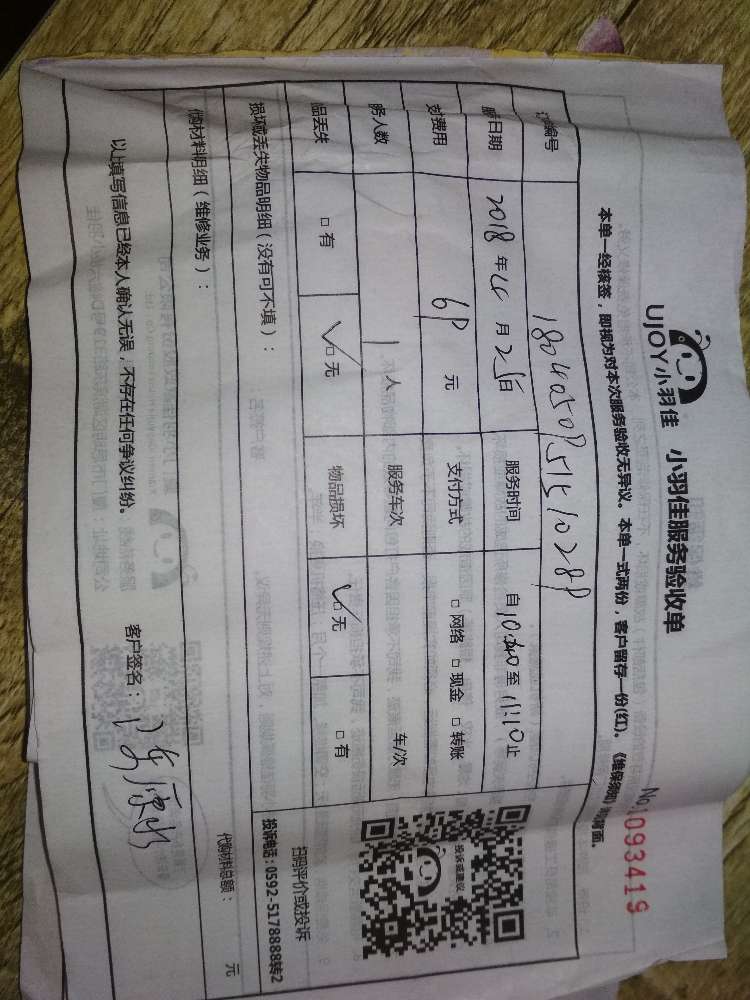 UJOY小羽佳 小羽佳服务验收单
No:093419
本单一经核签，即视为对本次服务验收无异议。本单一式两份，客户留存一份(红)。《维保须知》附背面。
编号
日期 2018年 月25日 服务时间 自10:40至11:10止
费用 元 支付方式 □网络 □现金 □转账
务人数 1人 服务车次 车/次
品丢失 □有 ✓□无 物品损坏 ✓□无 □有
损坏或丢失物品明细（没有可不填）：
投诉或建议
扫码评价或投诉
投诉电话：0592-5178888转2
材料明细（维修业务）：
代购材料总额： 元
以上填写信息已经本人确认无误，不存在任何争议纠纷。 客户签名：